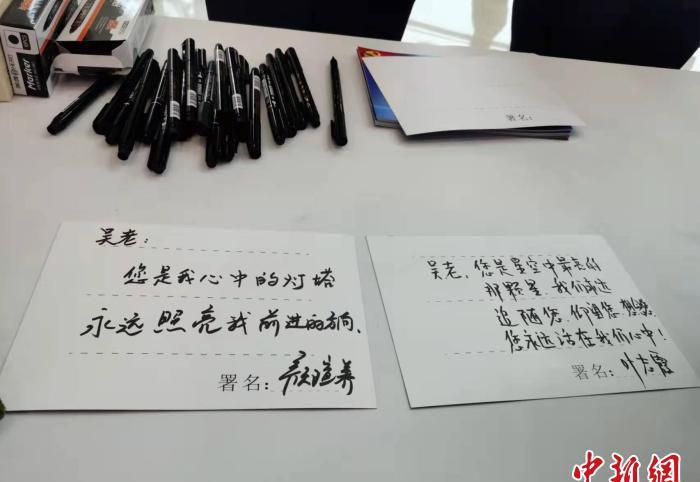 Marker
署名:
吴老:
您是我心中的灯塔
永远照亮我前进的方向.
署名:
吴老,您是星空中最亮的
那颗星,我们永远
追随您
您永远活在我们心中!
署名:
中新网